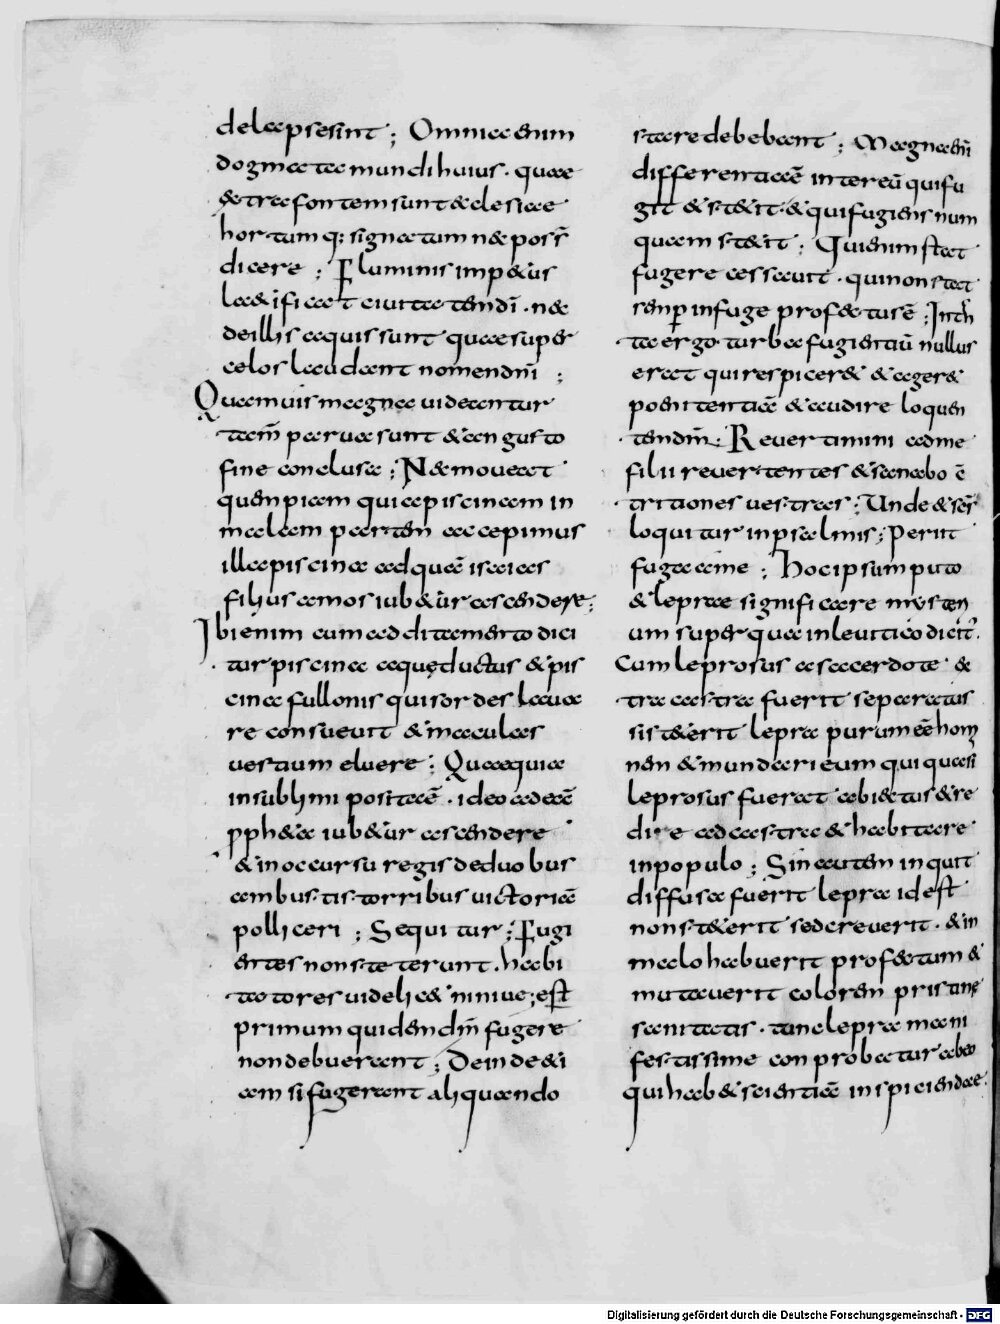 delapsesint; Omnia enim
dogmata mundi huius. quae
& tra fontem sunt ecclesiae
hortumq: signatum n̄ poss̄
dicere; Fluminis imp&us
l&ificat ciuitatem dn̄i. nae
de illis aquis sunt quae super
celos laudant nomen dn̄i;
Quamuis magna uideantur
tam̄ parua sunt & angusto
fine conclusa; Ne moueat
quempiam qui a piscinam in
malam partem accepimus
illa piscina ad quā isaias
filius amos iub&ur ascendere;
Ibi enim cum additamento dici
tur piscina aquęductus & pis
cina fullonis qui sordes laua
re consueuit & maculas
uestium eluere; Quae quia
in sublimi posita ē. ideo ad eā
pph&a iub&ur ascendere
& in occursu regis de duobus
ambustis torribus uictoriā
polliceri; Sequitur; Fugi
entes non steterunt. habi
tatores uidelic& niniue; est
primum quidem dn̄m fugere
non debuerant; Deinde &i
am si fugerant aliquando
stare debebant; Magnam
differentiā inter eū qui fu
git & st&it. & qui fugiens num
quam st&it; Qui enim stat
fugere cessauit. qui non stat
semp in fuga profectus ē; In tn
ta ergo turba fugientiū nullus
erat qui respicer& & ager&
poenitentiā & audire loquen
tem dn̄m; Reuertimini ad me
filii reuertentes & sanabo ē
tritiones uestras; Unde & scs̄
loquitur in psalmis; Periit
fuga a me; Hoc ipsum puto
& leprae significare mysteri
um super qua in leuitico dicit̄.
Cum leprosus a sacerdote &
tra castra fuerit separatus
si st&erit lepra purum eē homi
nem & mundari eum qui quasi
leprosus fuerat abiectus & re
dire ad castra & habitare
in populo; Sin autem inquit
diffusa fuerit lepra id est
non st&erit sed creuerit. & in
malo habuerit profectum &
mutauerit colorem pristinę
sanitatis. tunc lepra mani
festissime conprobatur ab eo
qui hab& scientiā inspiciendae.
Digitalisierung gefördert durch die Deutsche Forschungsgemeinschaft - DFG